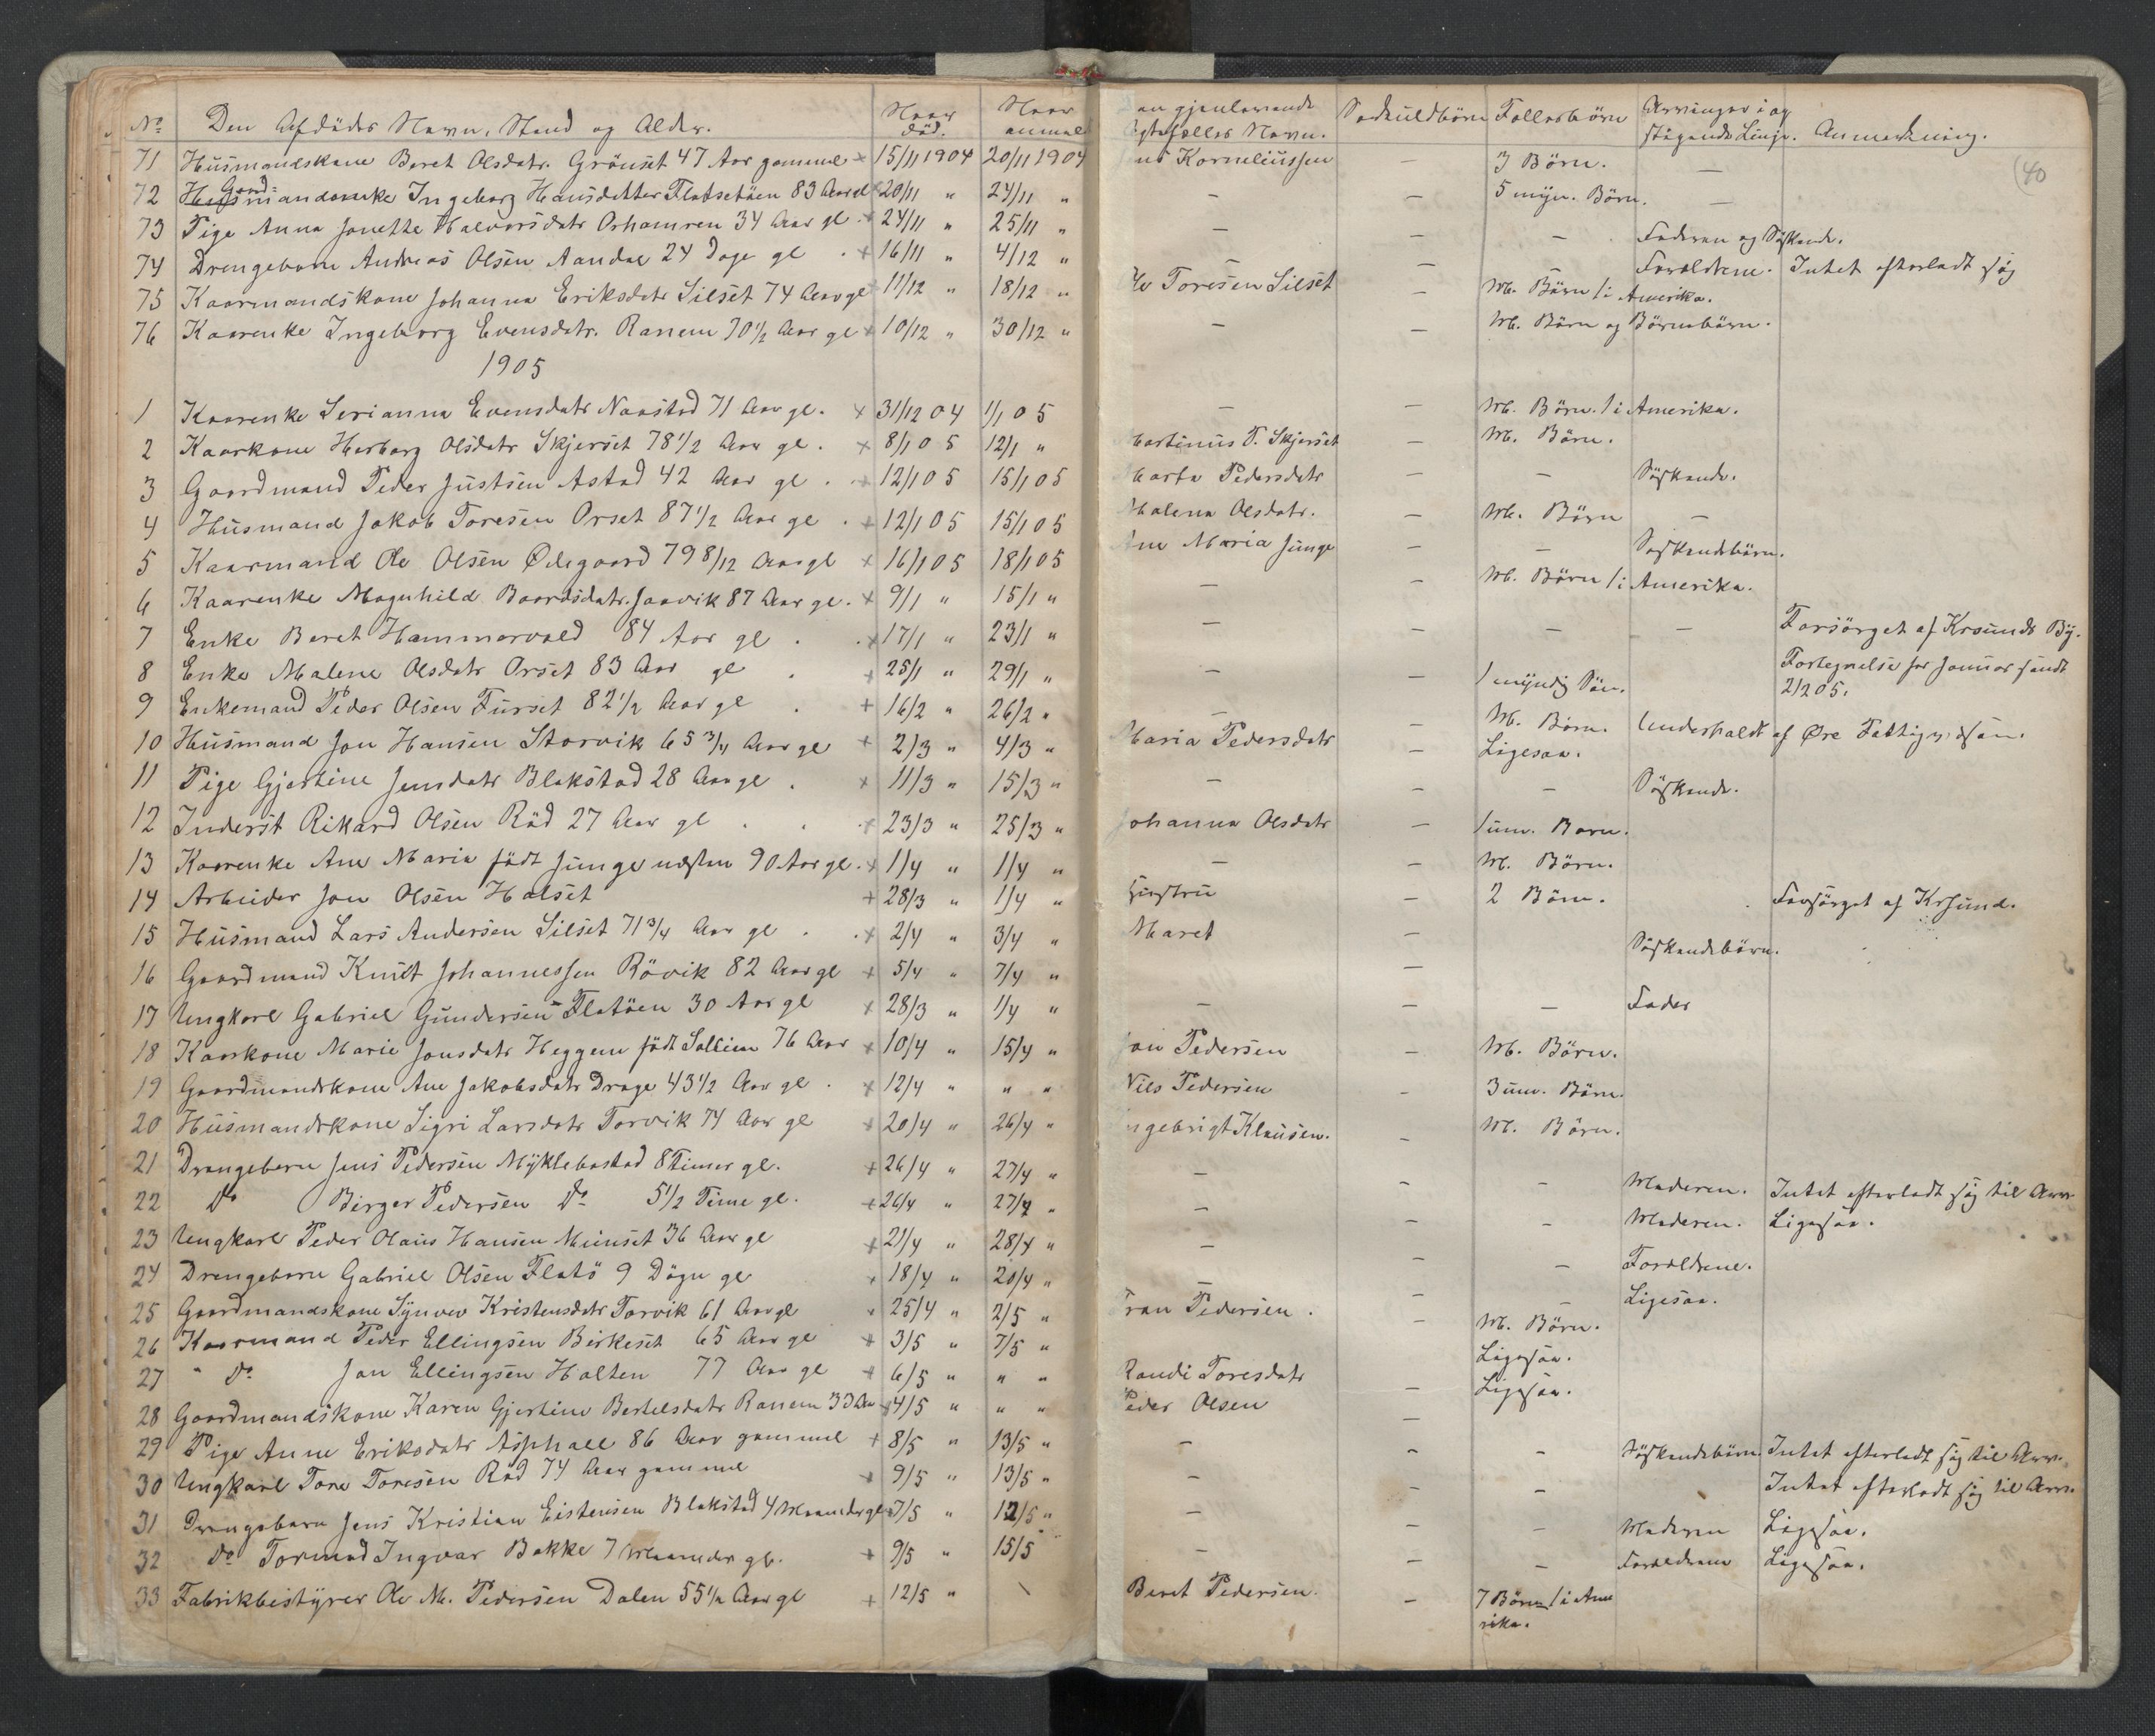 No Den Afdødes Navn, Stand og Alder. Naar død. Naar anmeldt gjenlevende Ægtefælles Navn. Særkuldbørn Fællesbørn Arvinger i op stigende Linje. Anmerkning.
(40
71 Husmandskone Beret Olsdatr. Grönset 47 Aar gammel × 15/11 1904 20/11 1904 Korneliussen — 3 Börn. —
72 Gaardmandsenke Ingeborg Hansdatter Flatsetöen 83 Aar gl × 20/11 " 24/11 " — — 5 myn. Börn. —
73 Pige Anna Jonette Halvorsdatr Orhamren 34 Aar gl × 24/11 " 25/11 " — — — Faderen og Söskende.
74 Drengebarn Andreas Olsen Aandal 24 Dage gl . × 16/11 " 4/12 " — — — Forældrene. Intet efterladt sig
75 Kaarmandskone Johanna Eriksdatr Silset 74 Aar gl × 11/12 " 18/12 " Toresen Silset — M. Börn 1 i Amerika.
76 Kaarenke Ingeborg Evensdatr. Ranem 70 1/2 Aar gl × 10/12 " 30/12 " — — M. Börn og Börnebörn.
1905
1 Kaarenke Serianna Evensdatr Naastad 71 Aar gl. × 31/12 04 1/1 05 — — M. Börn. 1 i Amerika.
2 Kaarkone Herborg Olsdatr Skjerset 78 1/2 Aar gl . × 8/1 05 12/1 " Martinus T. Skjerset — M. Börn.
3 Gaardmand Peder Justsen Astad 42 Aar gl . × 12/1 05 15/1 05 Marta Pedersdatr — — Söskende.
4 Husmand Jakob Toresen Orset 87 1/2 Aar gl . + 12/1 05 15/1 05 Malena Olsdatr. — M. Börn —
5 Kaarmand Ole Olsen Ødegaard 79 8/12 Aar gl × 16/1 05 18/1 05 Ane Maria Junge — — Söskendebörn.
6 Kaarenke Magnhild Baardsdatr. Jaavik 87 Aar gl. × 9/1 " 15/1 " — — M. Börn 1 i Amerika.
7 Enke Beret Hammervold 84 Aar gl . × 17/1 " 23/1 " — — — — Forsörget af Krsunds By.
8 Enke Malene Olsdatr Orset 83 Aar gl . + 25/1 " 29/1 " — — 1 myndig Sön. Fortegnelse for Januar sendt 2/2 05.
9 Enkemand Peder Olsen Furset 82 1/2 Aar gl . + 16/2 " 26/2 " — — M. Börn. Underholdt af Øre Fattigvæsen.
10 Husmand Jon Hansen Storvik 65 3/4 Aar gl + 2/3 " 4/3 " Maria Pedersdatr — Ligesaa.
11 Pige Gjertine Jensdatr Blakstad 28 Aar gl . × 11/3 " 15/3 " — — — Söskende.
12 Inderst Rikard Olsen Röd 27 Aar gl . . × 23/3 " 25/3 " Johanna Olsdatr — 1 um. Barn.
13 Kaarenke Ane Maria födt Junge næsten 90 Aar gl. × 1/4 " 1/4 " — — M. Börn.
14 Arbeider Jon Olsen Halset + 28/3 " 1/4 " Hustru — 2 Börn. Forsörget af Krsund.
15 Husmand Lars Andersen Silset 71 3/4 Aar gl . × 2/4 " 3/4 " Maret — Söskendebörn.
16 Gaardmand Knut Johannessen Rövik 82 Aar gl + 5/4 " 7/4 " —
17 Ungkarl Gabriel Gundersen Flatöen 30 Aar gl × 28/3 " 1/4 " — — — Fader
18 Kaarkone Marie Jonsdatr Heggem födt Solliem 76 Aar × 10/4 " 15/4 " Pedersen — M. Börn.
19 Gaardmandskone Ane Jakobsdatr Drage 43 1/2 Aar gl . × 12/4 " " " Nils Pedersen — 3 um. Börn.
20 Husmandskone Sigri Larsdatr Torvik 74 Aar gl × 20/4 " 26/4 " Ingebrigt Klausen. — M. Börn.
21 Drengebarn Jens Pedersen Myklebostad 8 Timer gl. + 26/4 " 27/4 " — — — Moderen. Intet efterladt sig til Arv
22 Do Birger Pedersen Do 5 1/2 Time gl. + 26/4 " 27/4 " — — — Moderen. Ligesaa.
23 Ungkarl Peder Olaus Hansen Meinset 36 Aar gl + 21/4 " 28/4 " — — — Forældrene.
24 Drengebarn Gabriel Olsen Flatö 9 Dögn gl + 18/4 " 20/4 " — — — Ligesaa.
25 Gaardmandskone Synnev Kristensdatr Torvik 61 Aar gl × 25/4 " 2/5 " Pedersen . — M. Börn.
26 Kaarmand Peder Ellingsen Birkeset 65 Aar gl + 3/5 " 7/5 " Ligesaa.
27 " Do Jon Ellingsen Halten 77 Aar gl + 6/5 " " " Randi Toresdatr — Ligesaa.
28 Gaardmandskone Karen Gjertine Bertelsdatr Ranem 33 Aar + 4/5 " " " Peder Olsen —
29 Pige Anne Eriksdatr Asphall 86 Aar gammel + 8/5 " 13/5 " — — — Söskendebörn Intet efterladt sig til Arv.
30 Ungkarl Tore Toresen Röd 74 Aar gammel + 9/5 " 13/5 " — — — Intet efterladt sig til Arv.
31 Drengebarn Jens Kristian Eistensen Blakstad 4 Maaneder gl + 7/5 " 12/5 " — — — Moderen Ligesaa.
32 Do Tormod Ingvar Bakke 7 Maaneder gl. + 9/5 " 15/5 — — — Forældrene Ligesaa.
33 Fabrikbestyrer Ole M. Pedersen Dalen 55 1/2 Aar gl + 12/5 " \ Beret Pedersen. — 7 Börn 1 i Ame
rika.